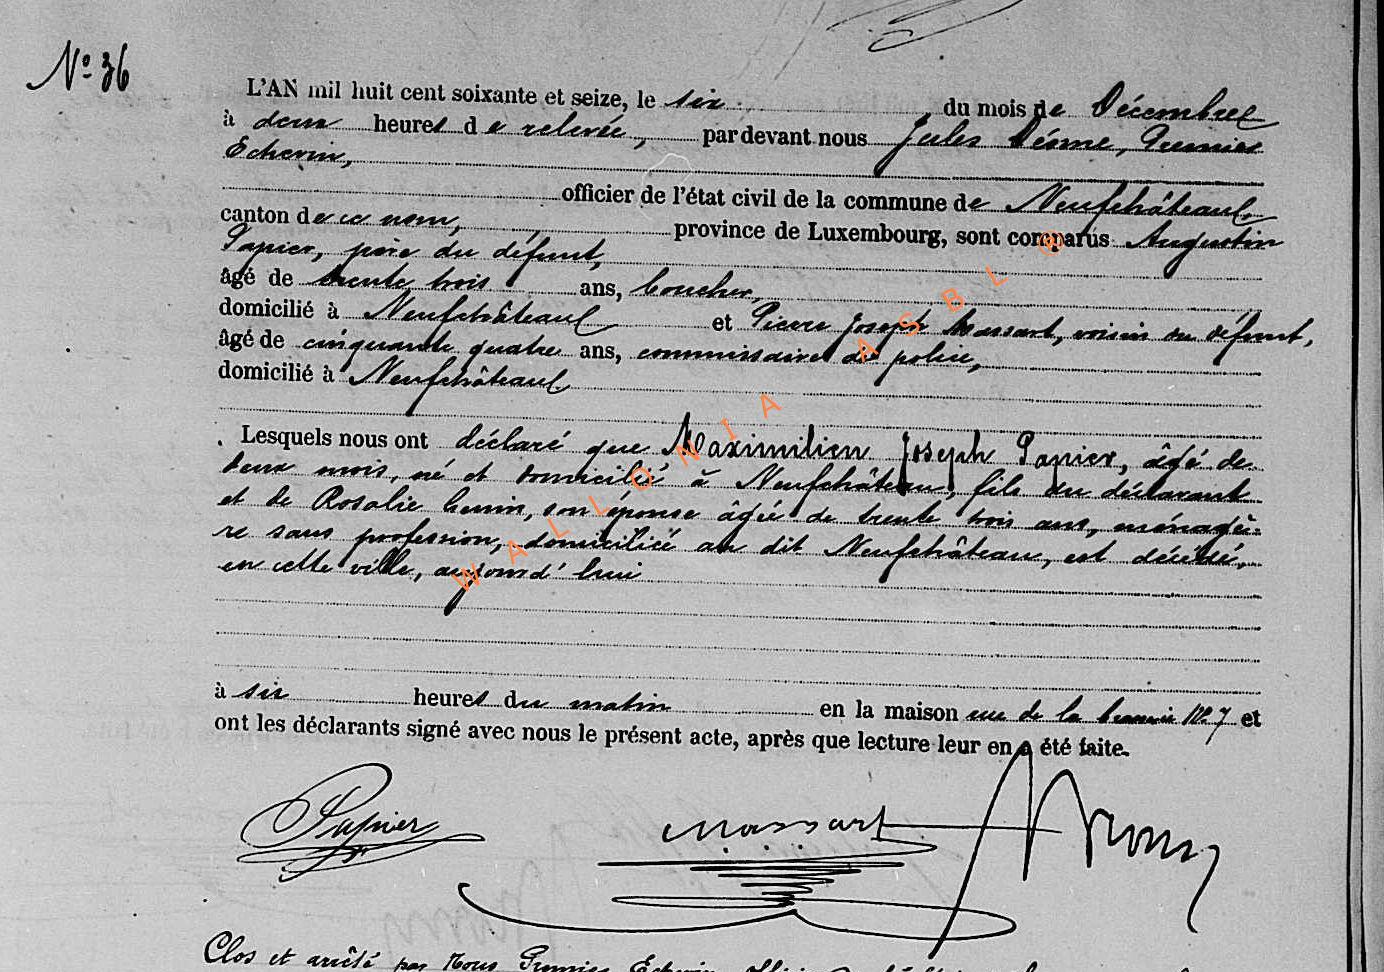 Nº 36
L'AN mil huit cent soixante et seize, le six du mois de Décembre
à deux heures de relevée, pardevant nous Jules Premier
Echevin,
officier de l'état civil de la commune de Neufchâteau
canton de ce nom, province de Luxembourg, sont comparus Augustin
Papier, père du défunt,
âgé de trente trois ans, boucher,
domicilié à Neufchâteau et Pierre Joseph Massart, voisin du défunt,
âgé de cinquante quatre ans, commissaire de police,
domicilié à Neufchâteau
Lesquels nous ont déclaré que Maximilien Joseph Papier, âgé de
deux mois, né et domicilié à Neufchâteau, fils du déclarant
et de Rosalie son épouse âgée de trente trois ans, ménagè-
re sans profession, domiciliée au dit Neufchâteau, est décédé,
en cette ville, aujourd'hui
à six heures du matin en la maison rue de la Nº 7 et
ont les déclarants signé avec nous le présent acte, après que lecture leur en a été faite.
Papier Massart
Clos et arrêté par Nous Premier Echevin,
WALLONIA ASBL ®